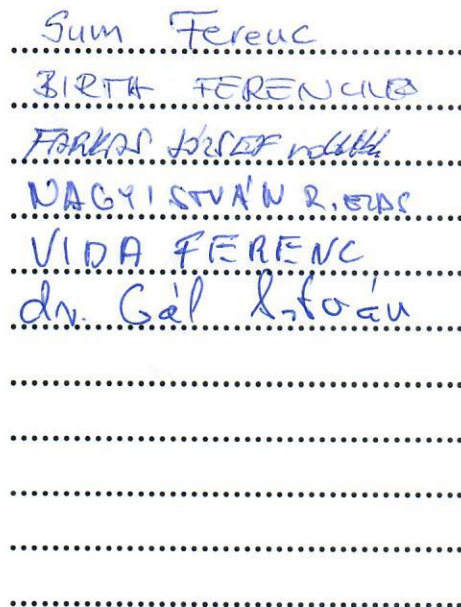 Sum Ferenc
BIRTH FERENCNÉ
FARKAS JÓZSEF
NAGY ISTVÁN R.
VIDA FERENC
dr. Gál István